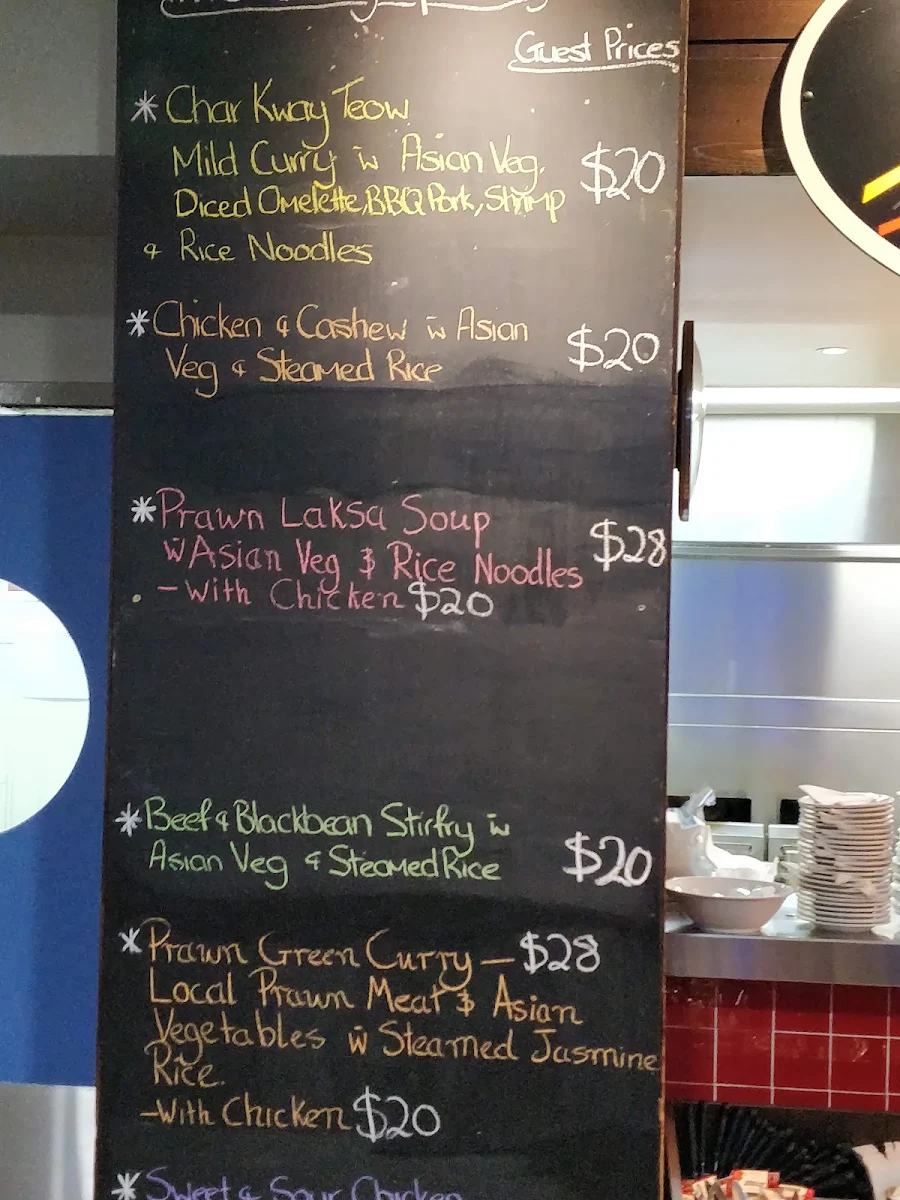 Guest Prices
* Char Kway Teow
Mild Curry w Asian Veg,
$20
Diced Omelette, BBQ Pork, Shrimp
& Rice Noodles
* Chicken & Cashew w Asian
Veg & Steamed Rice
$20
* Prawn Laksa Soup
w Asian Veg & Rice Noodles
$28
- With Chicken $20
* Beef & Blackbean Stirfry w
Asian Veg & Steamed Rice
$20
* Prawn Green Curry — $28
Local Prawn Meat & Asian
Vegetables w Steamed Jasmine
Rice.
- With Chicken $20
* Sweet & Sour Chicken